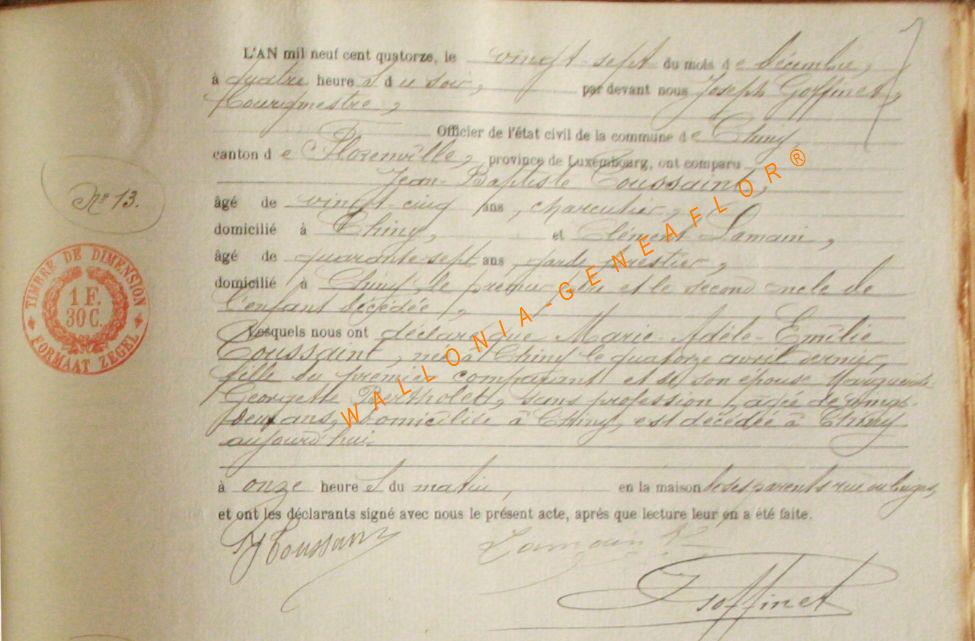 L'AN mil neuf cent quatorze, le vingt-sept du mois de Décembre,
à quatre heures du soir, par devant nous Joseph Goffinet,
Bourgmestre,
Officier de l'état civil de la commune de Chiny,
canton de Florenville, province de Luxembourg, ont comparu
Jean-Baptiste Toussaint,
âgé de vingt-cinq ans, charcutier,
domicilié à Chiny, et Clément Lamain,
âgé de quarante-sept ans, garde forestier,
domicilié à Chiny, le premier et le second oncle de
l'enfant décédée,
Lesquels nous ont déclaré que Marie-Adèle-Emilie
Toussaint, née à Chiny le quatorze avril dernier,
fille du premier comparant et de son épouse Marguerite
Georgette Bertholet, sans profession, âgée de vingt-
deux ans, domiciliée à Chiny, est décédée à Chiny
aujourd'hui
à onze heures du matin, en la maison de ses parents rue
et ont les déclarants signé avec nous le présent acte, après que lecture leur en a été faite.
Toussaint Lamain
Goffinet
No 13.
TIMBRE DE DIMENSION
1 F.
30 C.
FORMAAT ZEGEL
WALLONIA-GENEAFLOR®